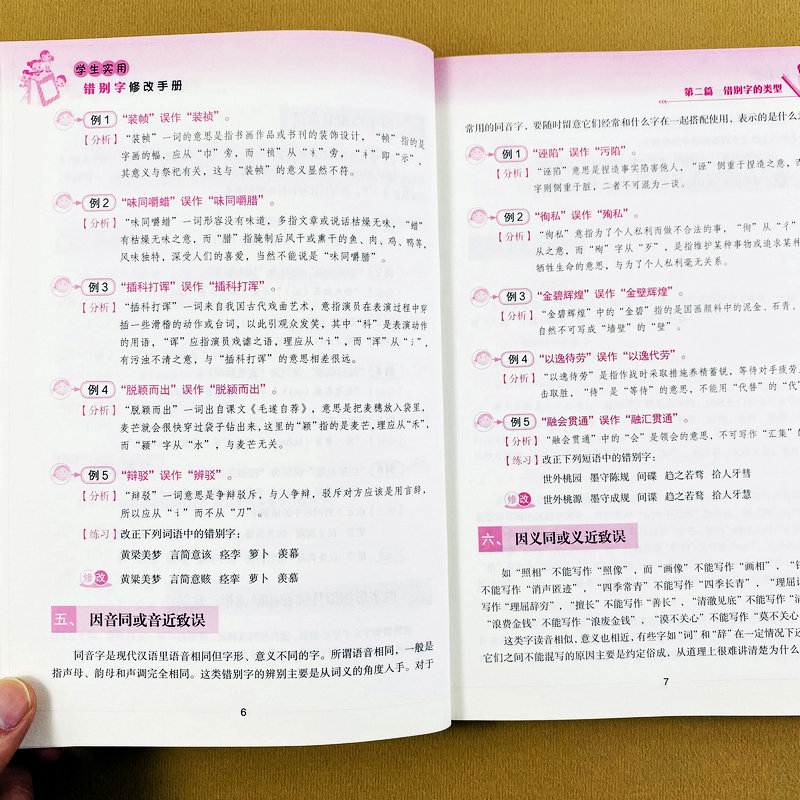 学生实用
错别字修改手册
例1 “装帧”误作“装祯”。
【分析】“装帧”一词的意思是指书画作品或书刊的装饰设计，“帧”指的是
字画的幅，应从“巾”旁，而“祯”从“礻”旁，“礻”即“示”，
其意义与祭祀有关，这与“装帧”的意义显然不符。
例2 “味同嚼蜡”误作“味同嚼腊”。
【分析】“味同嚼蜡”一词形容没有味道，多指文章或说话枯燥无味，“蜡”
有枯燥无味之意，而“腊”指腌制后风干或熏干的鱼、肉、鸡、鸭等，
风味独特，深受人们的喜爱，当然不能说是“味同嚼腊”。
例3 “插科打诨”误作“插科打浑”。
【分析】“插科打诨”一词来自我国古代戏曲艺术，意指演员在表演过程中穿
插一些滑稽的动作或台词，以此引观众发笑，其中“科”是表演动作
的用语，“诨”应指演员戏谑之语，理应从“讠”，而“浑”从“氵”，
有污浊不清之意，与“插科打诨”的意思相差很远。
例4 “脱颖而出”误作“脱颕而出”。
【分析】“脱颖而出”一词出自课文《毛遂自荐》，意思是把麦穗放入袋里，
麦芒就会很快穿过袋子钻出来，这里的“颖”指的是麦芒，理应从“禾”，
而“颕”字从“水”，与麦芒无关。
例5 “辩驳”误作“辨驳”。
【分析】“辩驳”一词意思是争辩驳斥，与人争辩，驳斥对方应该是用言辞，
所以应从“讠”而不从“刀”。
【练习】改正下列词语中的错别字：
黄梁美梦 言简意该 痉挛 萝卜 羡慕
修改 黄粱美梦 言简意赅 痉挛 萝卜 羡慕
五、 因音同或音近致误
同音字是现代汉语里语音相同但字形、意义不同的字。所谓语音相同，一般是
指声母、韵母和声调完全相同。这类错别字的辨别主要是从词义的角度入手。对于
6
第二篇 错别字的类型
常用的同音字，要随时留意它们经常和什么字在一起搭配使用，表示的是什么意
例1 “诬陷”误作“污陷”。
【分析】“诬陷”意思是捏造事实陷害他人，“诬”侧重于捏造之意，而
字则侧重于脏，二者不可混为一谈。
例2 “徇私”误作“殉私”。
【分析】“徇私”意指为了个人私利而做不合法的事，“徇”从“彳”
从之意，而“殉”字从“歹”，是指维护某种事物或追求某种
牺牲生命的意思，与为了个人私利毫无关系。
例3 “金碧辉煌”误作“金璧辉煌”。
【分析】“金碧辉煌”中的“金碧”指的是国画颜料中的泥金、石青、
自然不可写成“墙壁”的“壁”。
例4 “以逸待劳”误作“以逸代劳”。
【分析】“以逸待劳”是指作战时采取措施养精蓄锐，等待对手疲劳
击取胜，“待”是“等待”的意思，不能用“代替”的“代”
例5 “融会贯通”误作“融汇贯通”。
【分析】“融会贯通”中的“会”是领会的意思，不可写作“汇集”的
【练习】改正下列短语中的错别字：
世外桃园 墨守陈规 间碟 趋之若骛 拾人牙彗
修改 世外桃源 墨守成规 间谍 趋之若鹜 拾人牙慧
六、 因义同或义近致误
如“照相”不能写作“照像”，而“画像”不能写作“画相”，
不能写作“消声匿迹”，“四季常青”不能写作“四季长青”，“理屈
写作“理屈辞穷”，“擅长”不能写作“善长”，“清澈见底”不能写作“清
“浪费金钱”不能写作“浪废金钱”，“漠不关心”不能写作“莫不关心
这类字读音相似，意义也相近，有些字如“词”和“辞”在一定情况下还
它们之间不能混写的原因主要是约定俗成，从道理上很难讲清楚为什么
7